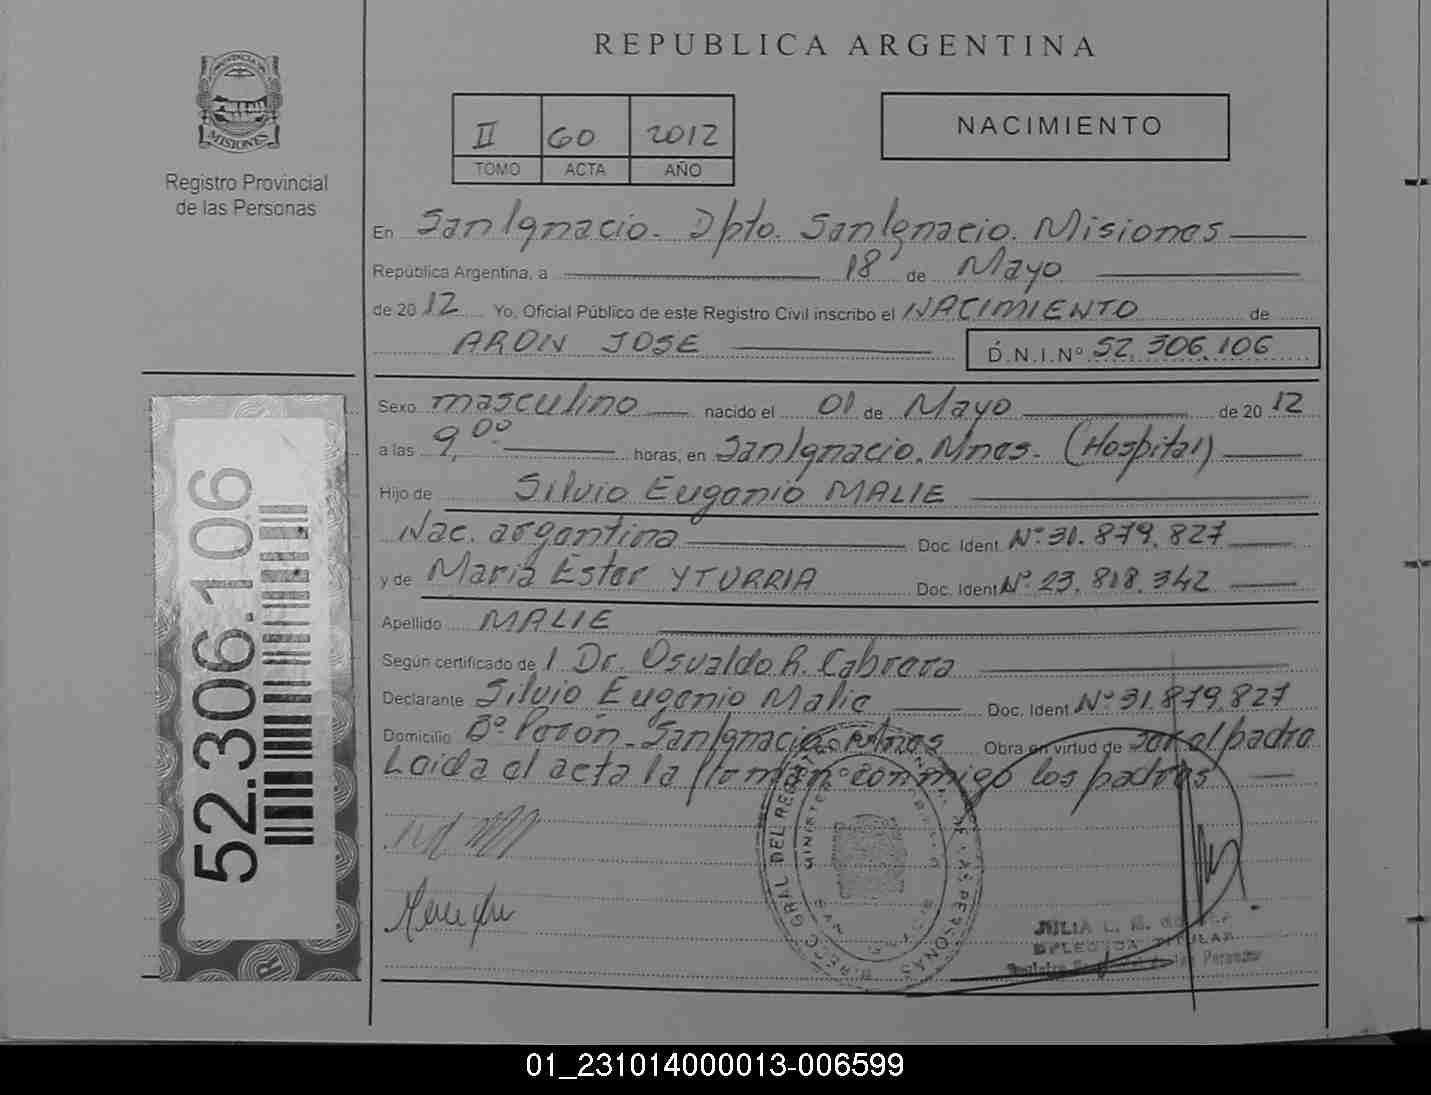 REPUBLICA ARGENTINA
MISIONES
Registro Provincial
de las Personas
II GO 2012
TOMO ACTA AÑO
NACIMIENTO
En San Ignacio. Dpto. San Ignacio. Misiones
República Argentina, a 18 de Mayo
de 2012 Yo, Oficial Público de este Registro Civil inscribo el NACIMIENTO de
ARON JOSE D.N.I.Nº 52.306.106
52.306.106
Sexo masculino nacido el 01 de Mayo de 2012
a las 9,00 horas, en San Ignacio. Mnes. (Hospital)
Hijo de Silvio Eugenio MALIE
Nac. argentina Doc. Ident. Nº 31.879.827
y de Maria Ester YTURRIA Doc. Ident. Nº 23.818.342
Apellido MALIE
Según certificado de 1 Dr. Osvaldo R. Cabrera
Declarante Silvio Eugenio Malie Doc. Ident. Nº 31.879.827
Domicilio Bº Perón - San Ignacio - Mnes Obra en virtud de ser el padre
Leida el acta la firman conmigo los padres
DIREC. GRAL DEL REGISTRO PERSONAS
JULIA
DELEGADA TITULAR
01_231014000013-006599